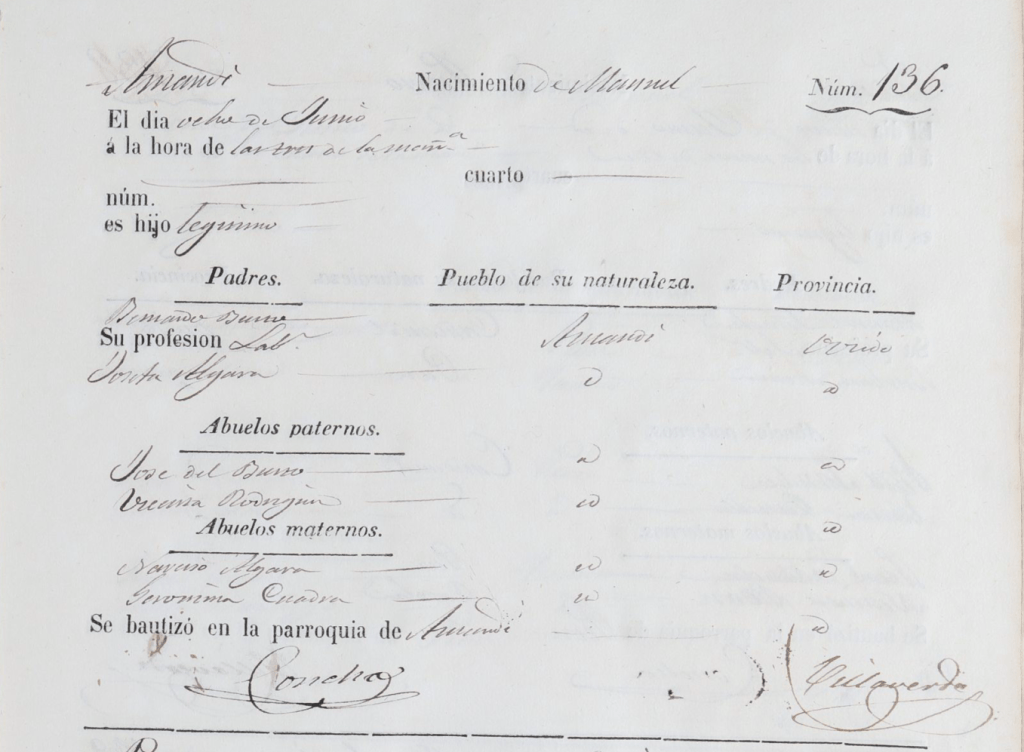 Amandi Nacimiento de Manuel Núm. 136.
El dia ocho de Junio
á la hora de las tres de la mañ.ª
cuarto
núm.
es hijo legitimo
Padres. Pueblo de su naturaleza. Provincia.
Bernardo Busto
Su profesion Lab.r Amandi Oviedo
Josefa Algara id id
Abuelos paternos.
Jose del Busto id id
Vicenta Rodriguez id id
Abuelos maternos.
Narciso Algara id id
Geronima Cuadra id id
Se bautizó en la parroquia de Amandi
Concha Villaverde